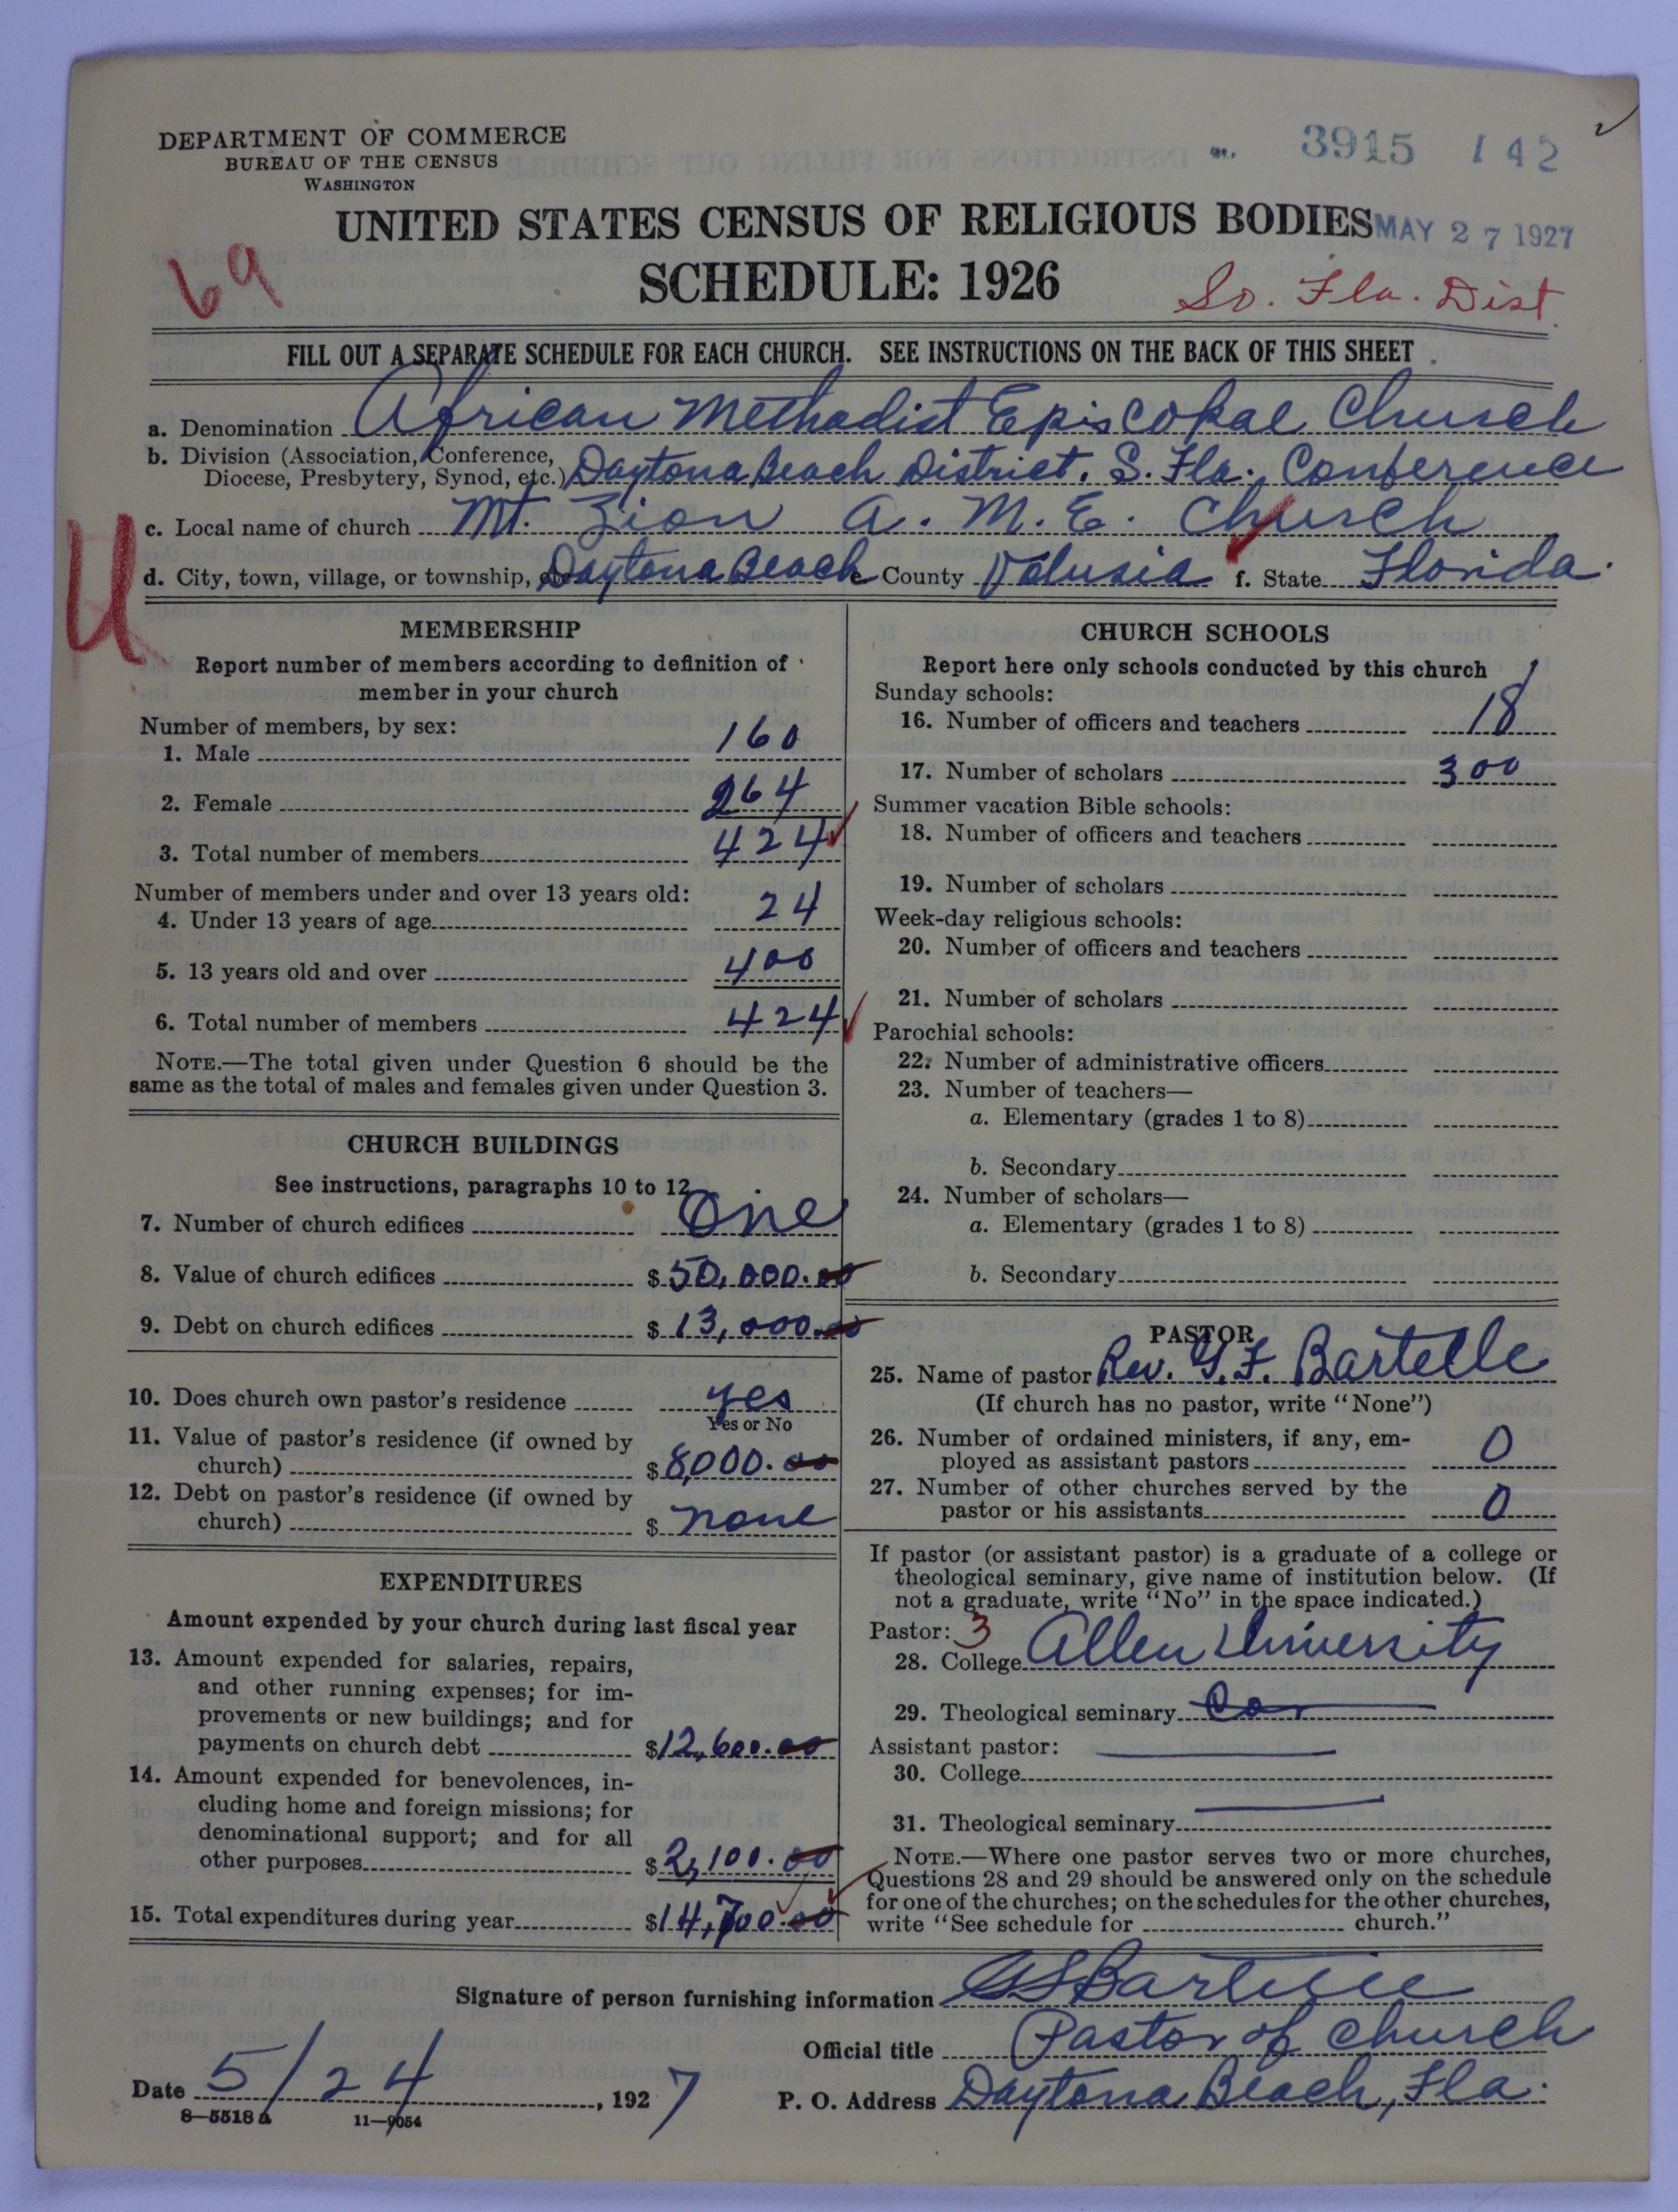 DEPARTMENT OF COMMERCE
BUREAU OF THE CENSUS
WASHINGTON
3915 142
UNITED STATES CENSUS OF RELIGIOUS BODIES
MAY 27 1927
SCHEDULE: 1926
69
So. Fla. Dist.
FILL OUT A SEPARATE SCHEDULE FOR EACH CHURCH. SEE INSTRUCTIONS ON THE BACK OF THIS SHEET
a. Denomination African Methodist Episcopal Church
b. Division (Association, Conference,
Diocese, Presbytery, Synod, etc.) Daytona Beach District. S. Fla. Conference
c. Local name of church Mt. Zion A. M. E. Church
d. City, town, village, or township, etc Daytona Beach e County Volusia f. State Florida.
U
MEMBERSHIP
Report number of members according to definition of
member in your church
Number of members, by sex:
1. Male 160
2. Female 264
3. Total number of members 424
Number of members under and over 13 years old:
4. Under 13 years of age 24
5. 13 years old and over 400
6. Total number of members 424
NOTE.—The total given under Question 6 should be the
same as the total of males and females given under Question 3.
CHURCH BUILDINGS
See instructions, paragraphs 10 to 12
7. Number of church edifices One
8. Value of church edifices $50,000.00
9. Debt on church edifices $13,000.00
10. Does church own pastor's residence yes
Yes or No
11. Value of pastor's residence (if owned by
church) $8,000.00
12. Debt on pastor's residence (if owned by
church) $ none
EXPENDITURES
Amount expended by your church during last fiscal year
13. Amount expended for salaries, repairs,
and other running expenses; for im-
provements or new buildings; and for
payments on church debt $12,600.00
14. Amount expended for benevolences, in-
cluding home and foreign missions; for
denominational support; and for all
other purposes $2,100.00
15. Total expenditures during year $14,700.00
CHURCH SCHOOLS
Report here only schools conducted by this church
Sunday schools:
16. Number of officers and teachers 18
17. Number of scholars 300
Summer vacation Bible schools:
18. Number of officers and teachers
19. Number of scholars
Week-day religious schools:
20. Number of officers and teachers
21. Number of scholars
Parochial schools:
22. Number of administrative officers
23. Number of teachers—
a. Elementary (grades 1 to 8)
b. Secondary
24. Number of scholars—
a. Elementary (grades 1 to 8)
b. Secondary
PASTOR
25. Name of pastor Rev. G. F. Bartelle
(If church has no pastor, write "None")
26. Number of ordained ministers, if any, em-
ployed as assistant pastors 0
27. Number of other churches served by the
pastor or his assistants 0
If pastor (or assistant pastor) is a graduate of a college or
theological seminary, give name of institution below. (If
not a graduate, write "No" in the space indicated.)
Pastor: 3
28. College Allen University
29. Theological seminary
Assistant pastor:
30. College
31. Theological seminary
NOTE.—Where one pastor serves two or more churches,
Questions 28 and 29 should be answered only on the schedule
for one of the churches; on the schedules for the other churches,
write "See schedule for church."
Signature of person furnishing information Bartelle
Official title Pastor of Church
Date 5/24, 1927 P. O. Address Daytona Beach, Fla.
8—5518 a 11—9054